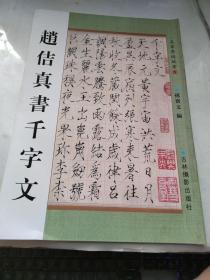 趙佶真書千字文
孫寶文 編
吉林攝影出版社
千字文
天地元黃宇宙洪荒日月
盈昃辰宿列張寒來暑往
秋收冬藏閏餘成歲律呂
調陽雲騰致雨露結為霜
金生麗水玉出崑岡劍號
巨闕珠稱夜光果珍李柰